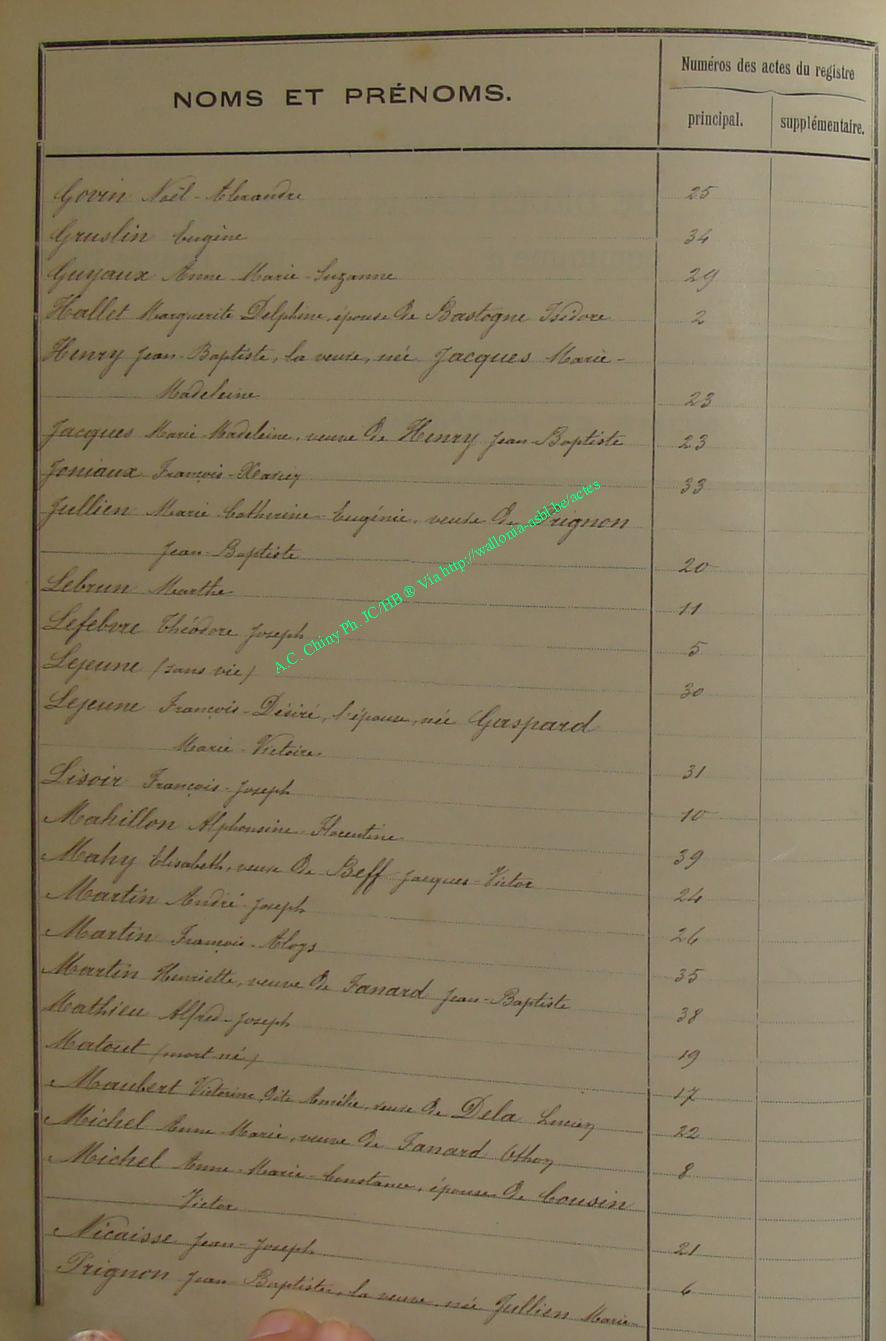 NOMS ET PRÉNOMS.
Numéros des actes du registre
principal. supplémentaire.
Govin Noël-Alexandre 25
Gruslin Eugène 34
Guyaux Anne-Marie-Suzanne 29
Hallet Marguerite Delphine, épouse de Bastogne Isidore 2
Henry Jean-Baptiste, la veuve, née Jacques Marie-
Madeleine 23
Jacques Marie-Madeleine, veuve de Henry Jean-Baptiste 23
Joniaux François-Xavier 33
Jullien Marie Catherine-Eugénie, veuve de Prignon
Jean-Baptiste 20
Lebrun Marthe 11
Lefebvre Théodore Joseph 5
Lejeune (sans vie) 30
Lejeune François-Désiré, l'épouse, née Gaspard
Marie-Victoire 31
Lisoir François-Joseph 10
Mahillon Alphonsine-Florentine 39
Mahy Elisabeth, veuve de Beff Jacques-Victor 24
Martin André-Joseph 26
Martin François-Aloys 35
Martin Henriette, veuve de Fanard Jean-Baptiste 38
Mathieu Alfred-Joseph 19
Matout (mort né) 17
Maubert Victorine, dite Amélie, veuve de Dela Lucien 22
Michel Anne-Marie, veuve de Fanard Othon 8
Michel Anne-Marie-Constance, épouse de Cousin
Victor 21
Nicaisse Jean-Joseph 6
Prignon Jean Baptiste, la veuve, née Jullien Marie-
A.C. Chiny Ph. JC/HB ® Via http://wallonia-asbl.be/actes